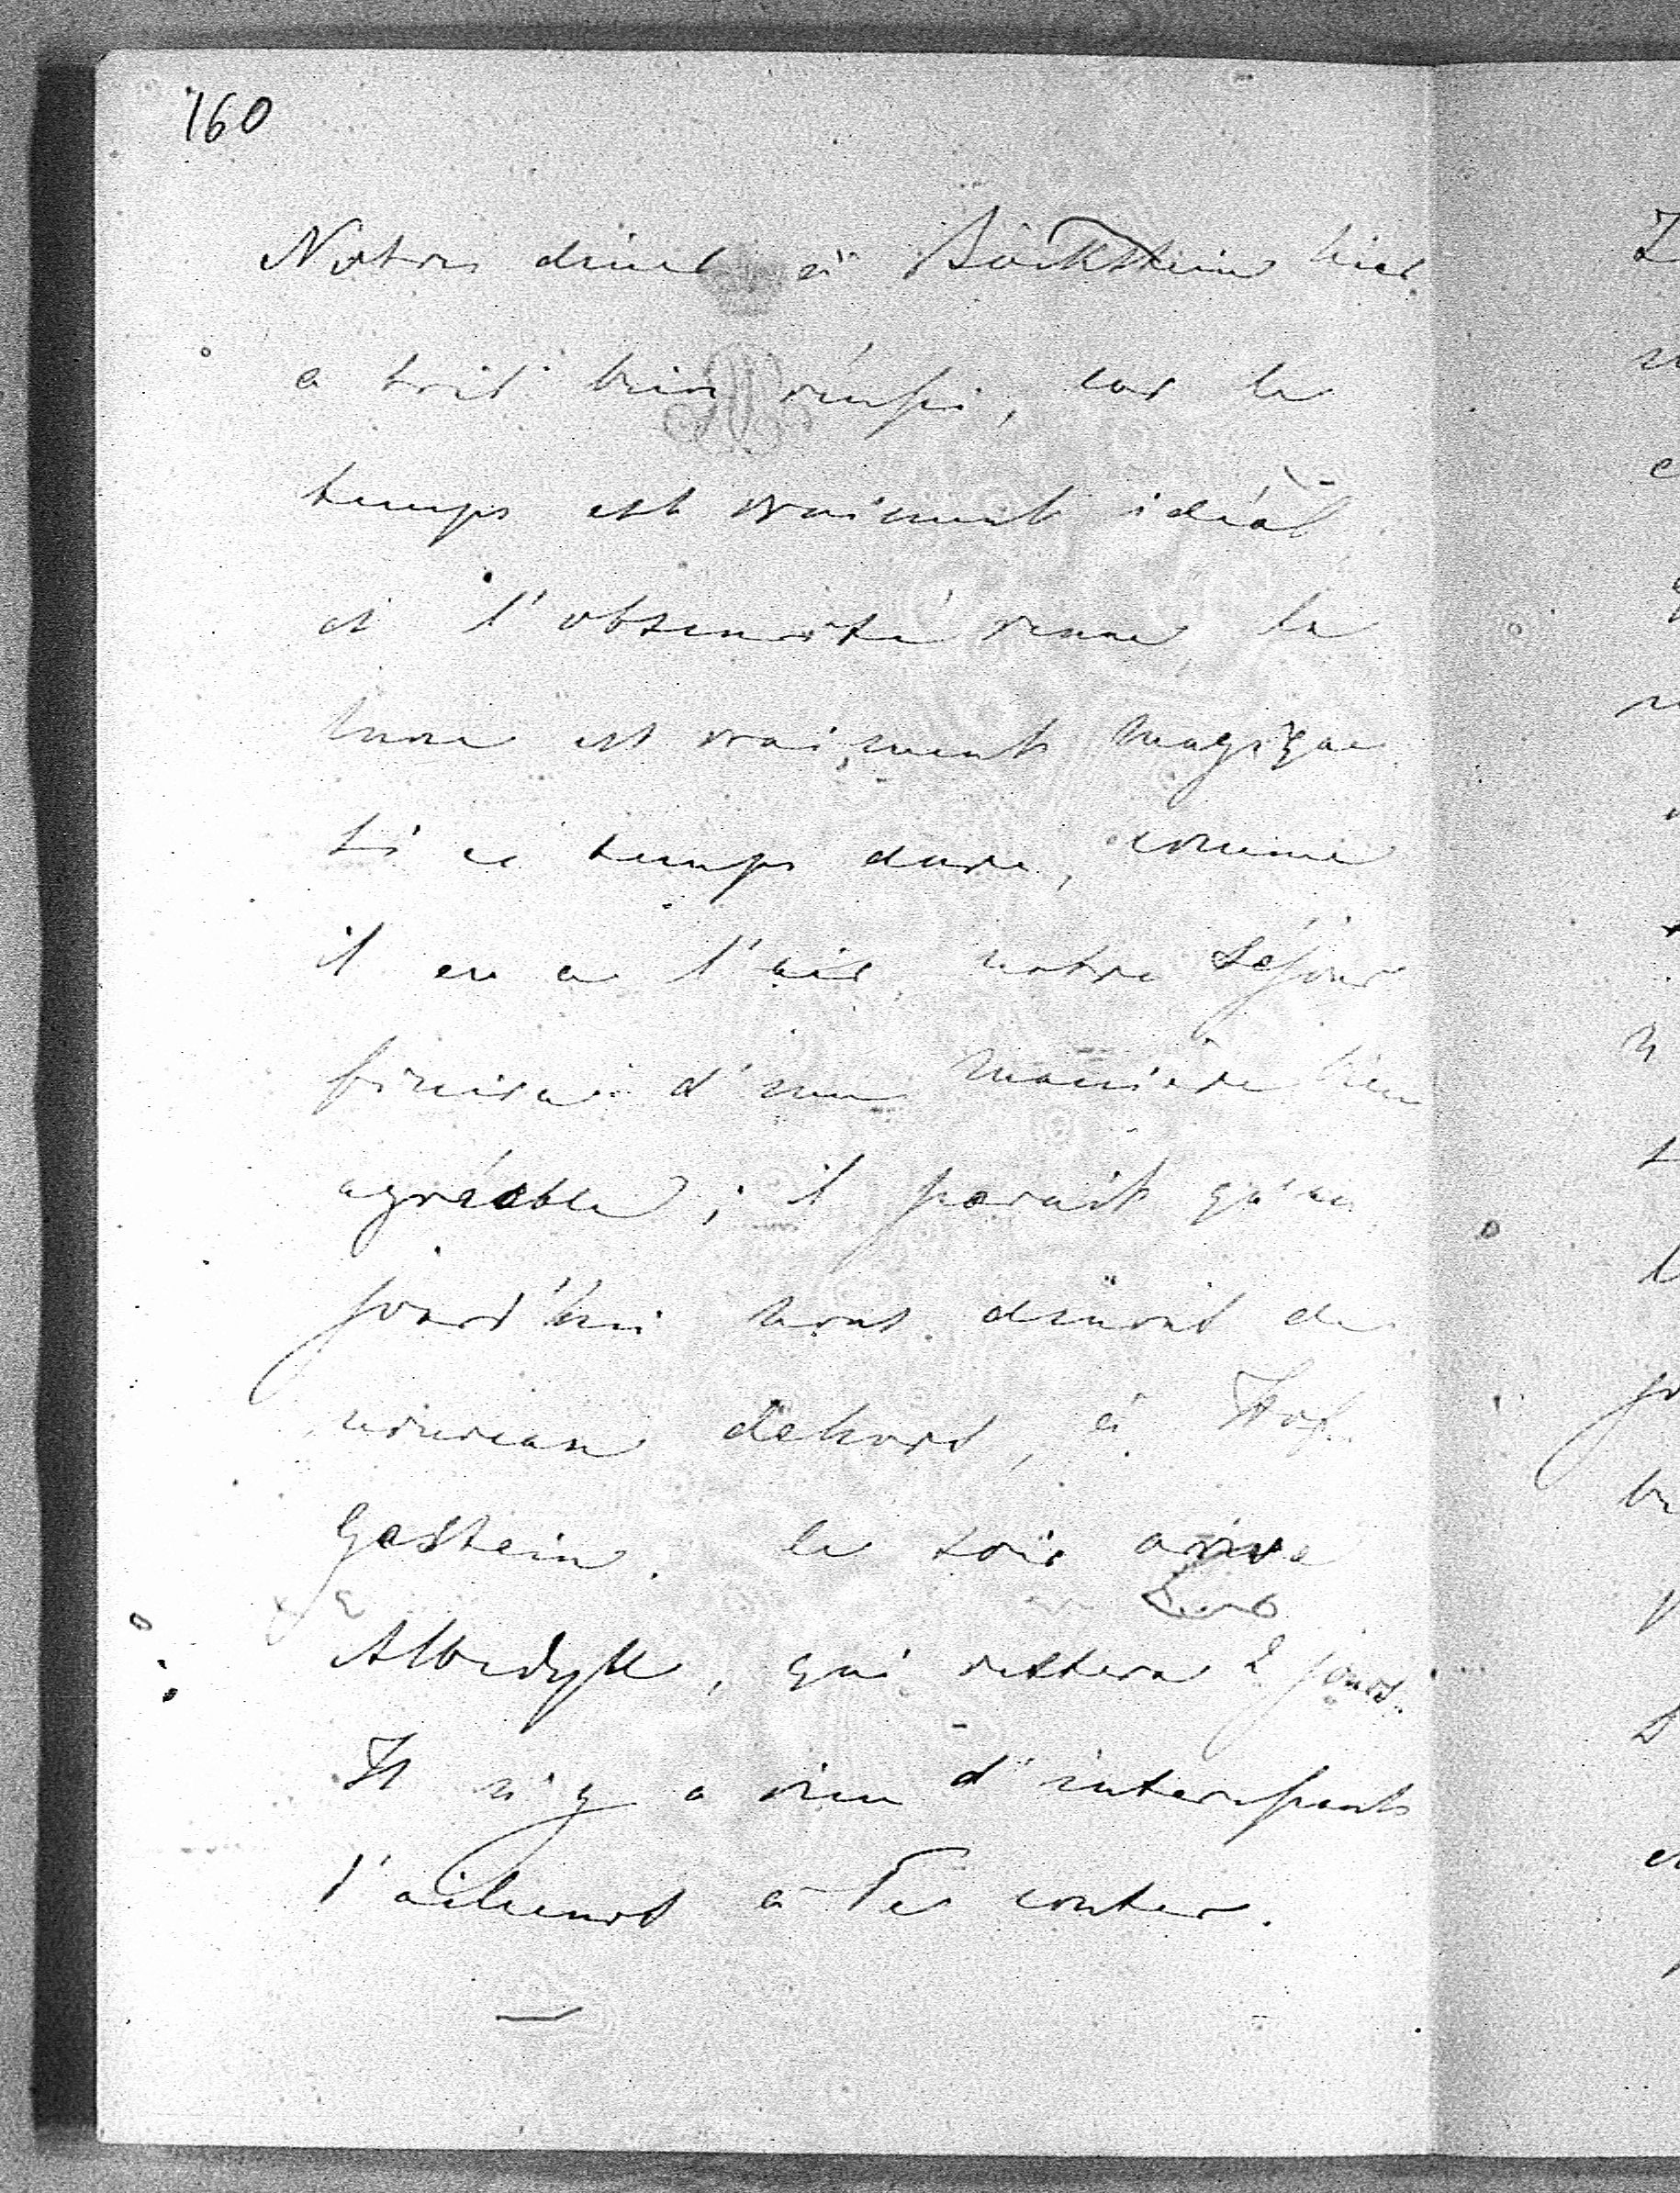 160
Notre diner à Böckstein hier
a très bien réussi, car le
temps est vraiment idéal
et l'obscurité venue, la
lune est vraiment magique
si ce temps dure, comme
il en a l'air, notre séjour
finira d'une manière bien
agréable; il parait qu'au
jourd'hui nous dinons de
nouveau dehors, à Hof
Gastein. le soir arrive
Albedyll, qui restera 2 jours.
Il n'y a rien d'interessant
d'ailleurs à Te conter.